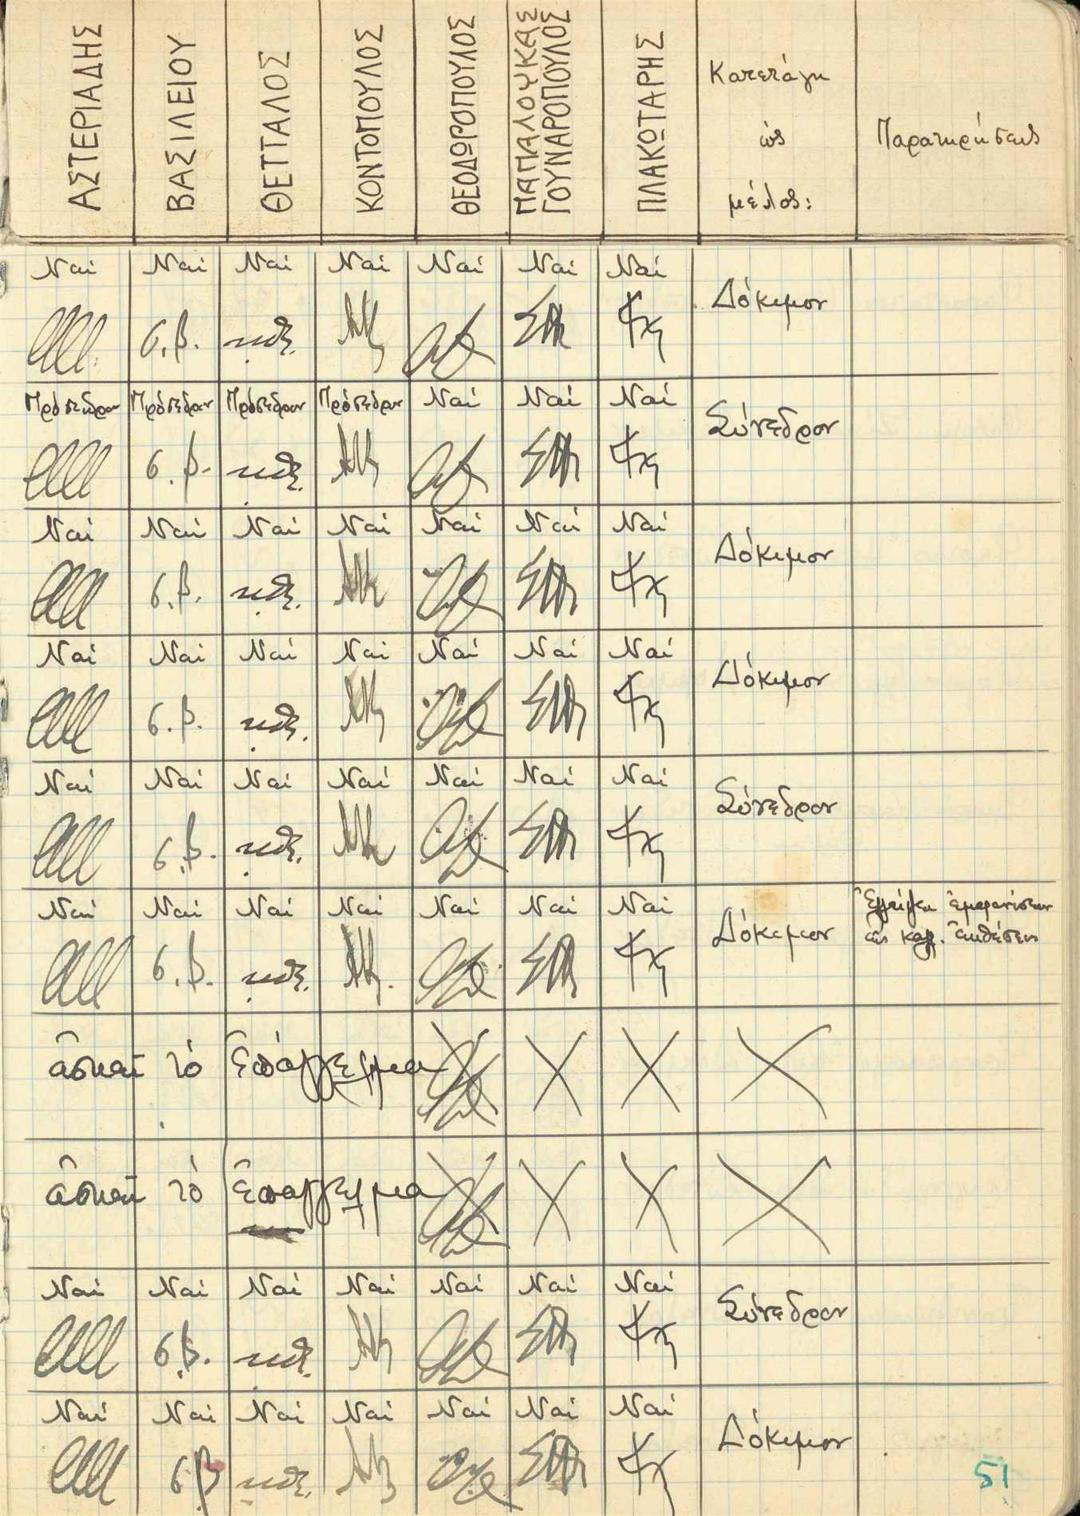 ΑΣΤΕΡΙΑΔΗΣ ΒΑΣΙΛΕΙΟΥ ΘΕΤΤΑΛΟΣ ΚΟΝΤΟΠΟΥΛΟΣ ΘΕΟΔΩΡΟΠΟΥΛΟΣ ΠΑΠΑΛΟΥΚΑΣ ΓΟΥΝΑΡΟΠΟΥΛΟΣ ΠΛΑΚΩΤΑΡΗΣ Κατετάγη ὡς μέλος: Παρατηρήσεις
Ναί Ναί Ναί Ναί Ναί Ναί Ναί
σ.β. Δόκιμον
Πρόσεδρον Πρόσεδρον Πρόσεδρον Πρόσεδρον Ναί Ναί Ναί
σ.β. Σύνεδρον
Ναί Ναί Ναί Ναί Ναί Ναί Ναί
σ.β. Δόκιμον
Ναί Ναί Ναί Ναί Ναί Ναί Ναί
σ.β. Δόκιμον
Ναί Ναί Ναί Ναί Ναί Ναί Ναί
σ.β. Σύνεδρον
Ναί Ναί Ναί Ναί Ναί Ναί Ναί
σ.β. Δόκιμον
ἀσκεῖ τό ἐπάγγελμα
ἀσκεῖ τό ἐπάγγελμα
Ναί Ναί Ναί Ναί Ναί Ναί Ναί
σ.β. Σύνεδρον
Ναί Ναί Ναί Ναί Ναί Ναί Ναί
σβ Δόκιμον
51